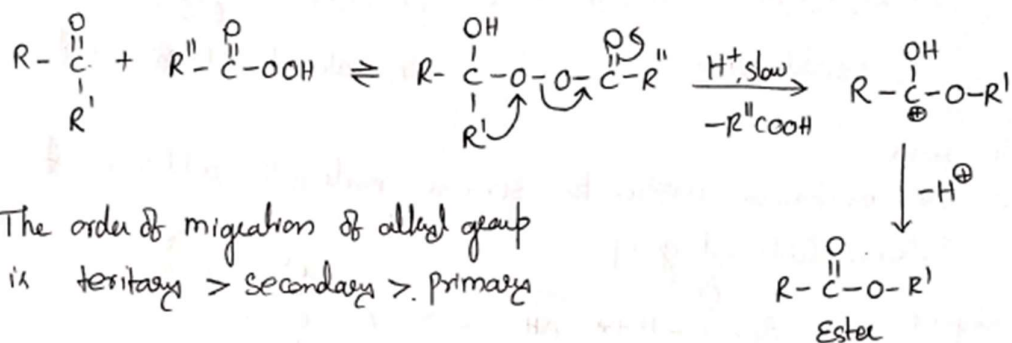 R - C(=O)(-R') + R'' - C(=O) - OOH ⇌ R - C(OH)(-R') - O - O - C(=O) - R'' → R - C⊕(OH) - O - R'
H⁺, slow
- R''COOH
- H⊕
The order of migration of alkyl group
is teritary > secondary > primary
R - C(=O) - O - R'
Ester